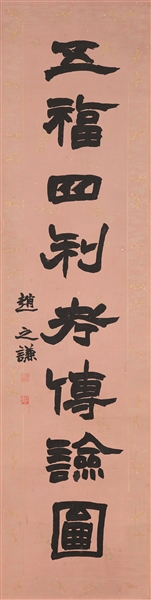 五福四利考傳譣圖
趙之謙